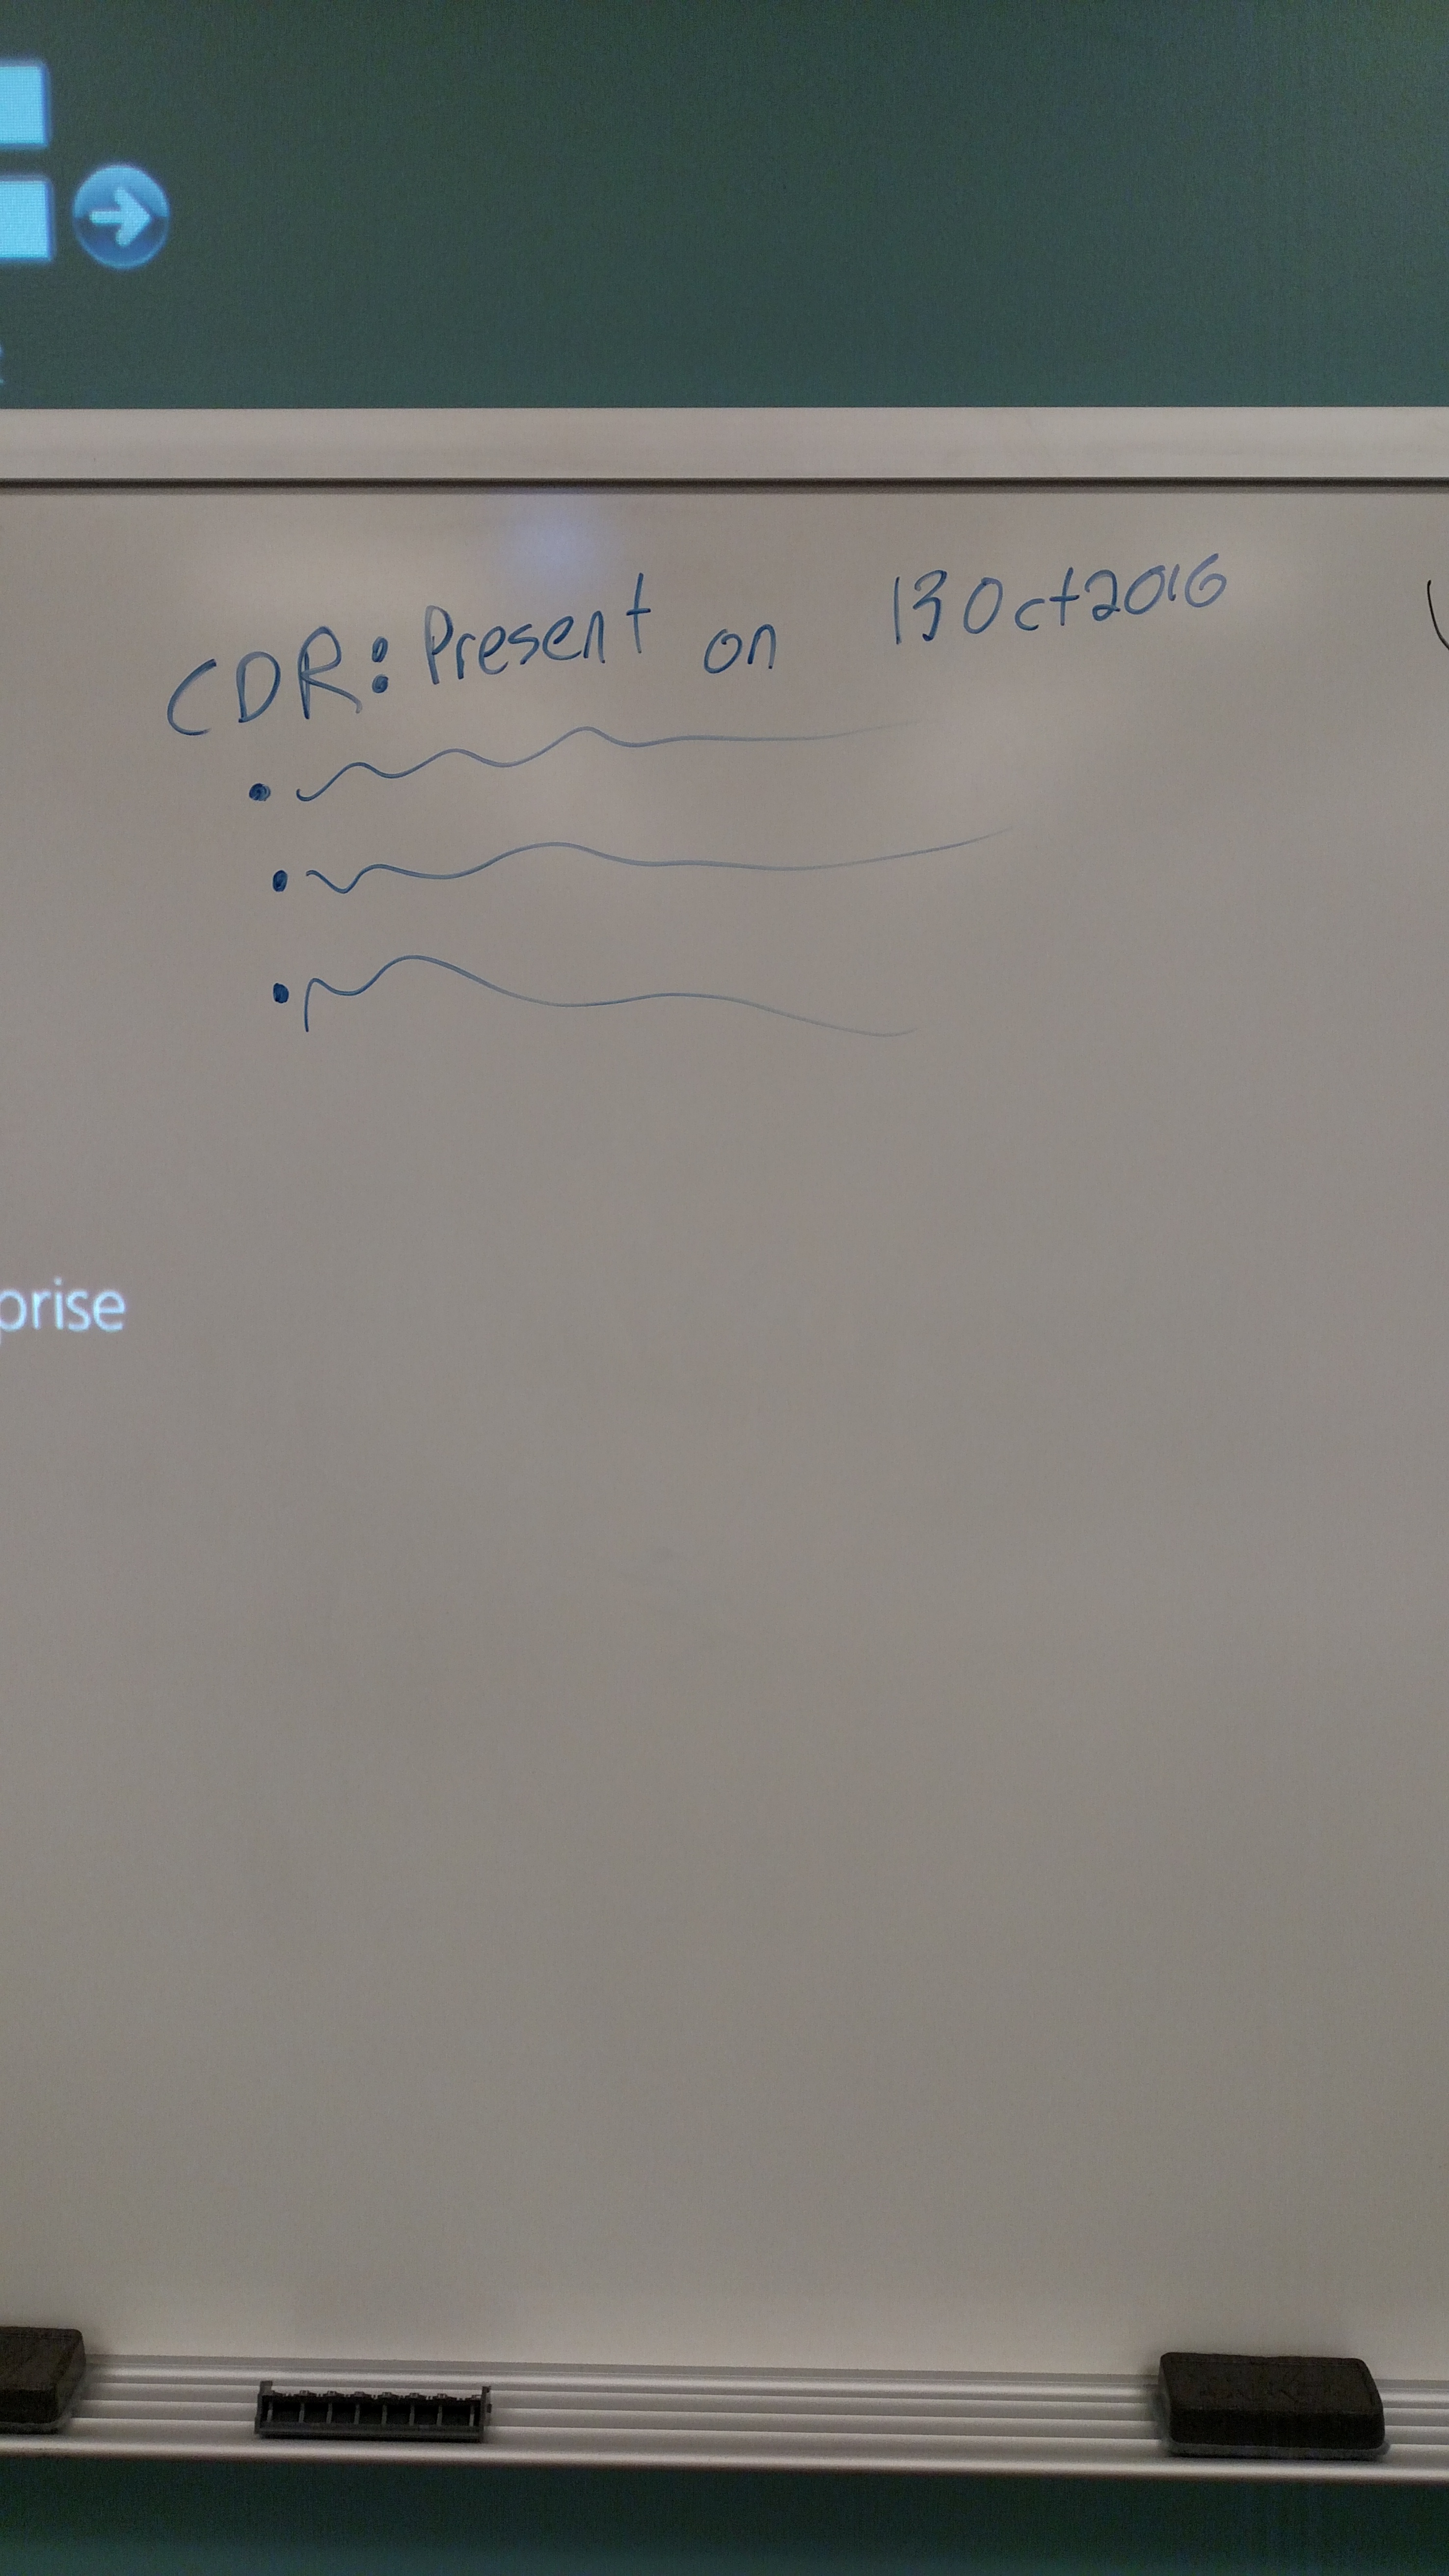 CDR: Present on 13 Oct 2016
prise